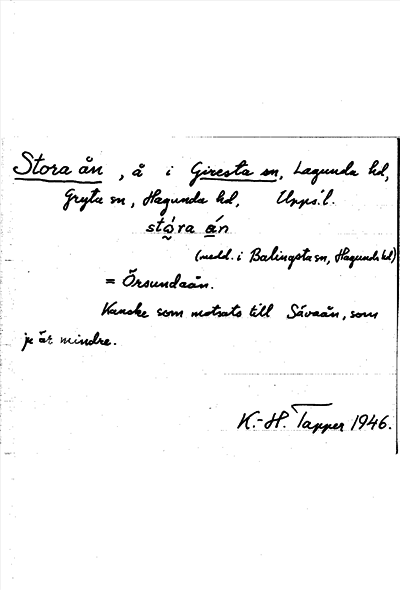 Stora ån, å i Giresta sn, Lagunda hd,
Gryta sn, Hagunda hd, Upps.l.
stóra án
(medd. i Balingsta sn, Hagunda hd)
= Örsundaån.
Kanske som motsats till Sävaån, som
ju är mindre.
K.-H. Tapper 1946.